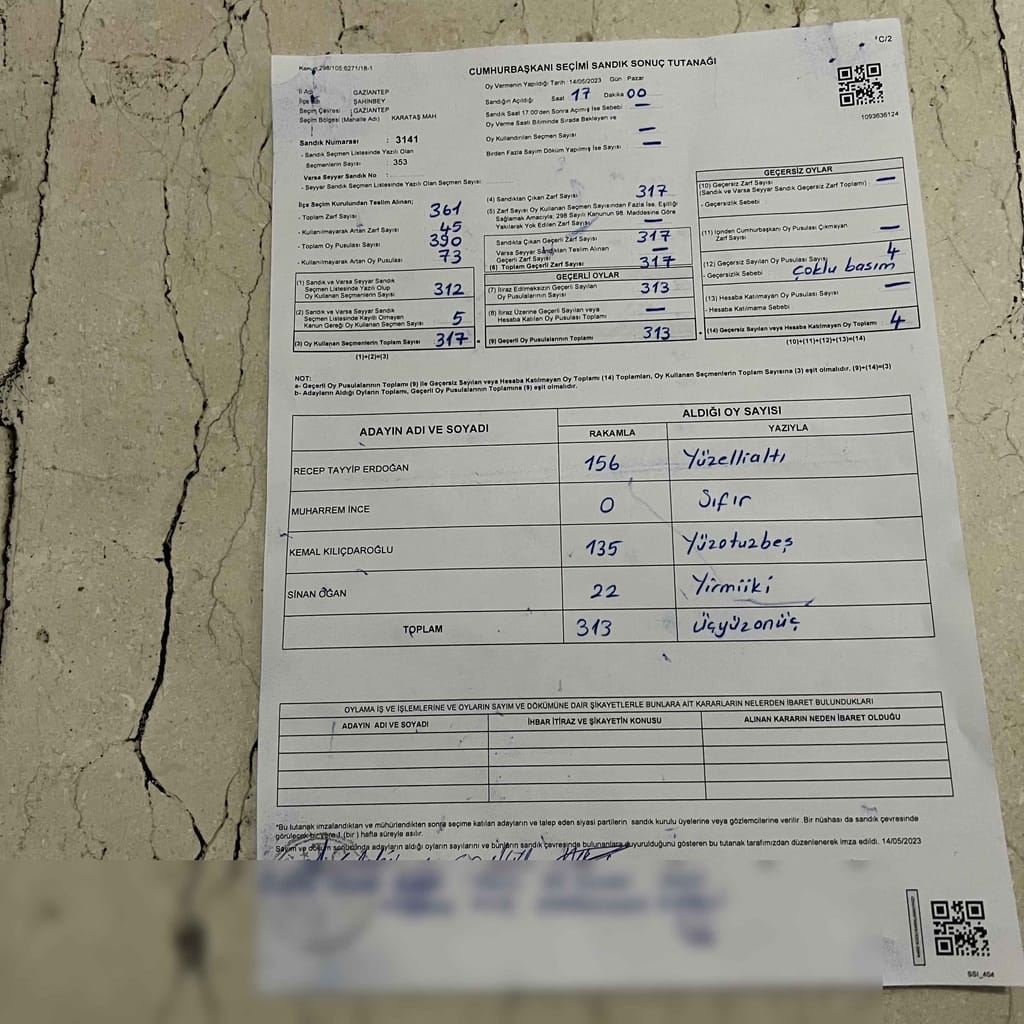 1C/2
CUMHURBAŞKANI SEÇİMİ SANDIK SONUÇ TUTANAĞI
İl Adı : GAZİANTEP
İlçe Adı : ŞAHİNBEY
Seçim Çevresi : GAZİANTEP
Seçim Bölgesi (Mahalle Adı) : KARATAŞ MAH
Sandık Numarası : 3141
- Sandık Seçmen Listesinde Yazılı Olan
Seçmenlerin Sayısı : 353
Varsa Seyyar Sandık No :
- Seyyar Sandık Seçmen Listesinde Yazılı Olan Seçmen Sayısı
Oy Vermenin Yapıldığı Tarih : 14/05/2023 Gün : Pazar
Sandığın Açıldığı Saat 17 Dakika 00
Sandık Saat 17.00'den Sonra Açılmış İse Sebebi —
Oy Verme Saati Bitiminde Sırada Bekleyen ve
Oy Kullandırılan Seçmen Sayısı —
Birden Fazla Sayım Döküm Yapılmış İse Sayısı —
1093636124
İlçe Seçim Kurulundan Teslim Alınan;
- Toplam Zarf Sayısı 361
- Kullanılmayarak Artan Zarf Sayısı 45
- Toplam Oy Pusulası Sayısı 390
- Kullanılmayarak Artan Oy Pusulası 73
(1) Sandık ve Varsa Seyyar Sandık
Seçmen Listesinde Yazılı Olup
Oy Kullanan Seçmenlerin Sayısı 312
(2) Sandık ve Varsa Seyyar Sandık
Seçmen Listesinde Kayıtlı Olmayan
Kanun Gereği Oy Kullanan Seçmen Sayısı 5
(3) Oy Kullanan Seçmenlerin Toplam Sayısı 317
(1)+(2)=(3)
(4) Sandıktan Çıkan Zarf Sayısı 317
(5) Zarf Sayısı Oy Kullanan Seçmen Sayısından Fazla İse, Eşitliği
Sağlamak Amacıyla; 298 Sayılı Kanunun 98. Maddesine Göre
Yakılarak Yok Edilen Zarf Sayısı —
Sandıkta Çıkan Geçerli Zarf Sayısı 317
Varsa Seyyar Sandıktan Teslim Alınan
Geçerli Zarf Sayısı —
(6) Toplam Geçerli Zarf Sayısı 317
GEÇERLİ OYLAR
(7) İtiraz Edilmeksizin Geçerli Sayılan
Oy Pusulalarının Sayısı 313
(8) İtiraz Üzerine Geçerli Sayılan veya
Hesaba Katılan Oy Pusulası Toplamı —
(9) Geçerli Oy Pusulalarının Toplamı 313
GEÇERSİZ OYLAR
(10) Geçersiz Zarf Sayısı —
(Sandık ve Varsa Seyyar Sandık Geçersiz Zarf Toplamı)
- Geçersizlik Sebebi
(11) İçinden Cumhurbaşkanı Oy Pusulası Çıkmayan
Zarf Sayısı —
(12) Geçersiz Sayılan Oy Pusulası Sayısı 4
- Geçersizlik Sebebi Çoklu basım
(13) Hesaba Katılmayan Oy Pusulası Sayısı —
- Hesaba Katılmama Sebebi
(14) Geçersiz Sayılan veya Hesaba Katılmayan Oy Toplamı 4
(10)+(11)+(12)+(13)=(14)
NOT:
a- Geçerli Oy Pusulalarının Toplamı (9) ile Geçersiz Sayılan veya Hesaba Katılmayan Oy Toplamı (14) Toplamları, Oy Kullanan Seçmenlerin Toplam Sayısına (3) eşit olmalıdır. (9)+(14)=(3)
b- Adayların Aldığı Oyların Toplamı, Geçerli Oy Pusulalarının Toplamına (9) eşit olmalıdır.
ADAYIN ADI VE SOYADI
ALDIĞI OY SAYISI
RAKAMLA YAZIYLA
RECEP TAYYİP ERDOĞAN 156 Yüzellialtı
MUHARREM İNCE 0 Sıfır
KEMAL KILIÇDAROĞLU 135 Yüzotuzbeş
SİNAN OĞAN 22 Yirmiiki
TOPLAM 313 Üçyüzonüç
OYLAMA İŞ VE İŞLEMLERİNE VE OYLARIN SAYIM VE DÖKÜMÜNE DAİR ŞİKAYETLERLE BUNLARA AİT KARARLARIN NELERDEN İBARET BULUNDUKLARI
ADAYIN ADI VE SOYADI İHBAR İTİRAZ VE ŞİKAYETİN KONUSU ALINAN KARARIN NEDEN İBARET OLDUĞU
*Bu tutanak imzalandıktan ve mühürlendikten sonra seçime katılan adayların ve talep eden siyasi partilerin sandık kurulu üyelerine veya gözlemcilerine verilir. Bir nüshası da sandık çevresinde
görülecek bir yere 1 (bir) hafta süreyle asılır.
Sayım ve döküm sonucunda adayların aldığı oyların sayılarını ve bunların sandık çevresinde bulunanlara duyurulduğunu gösteren bu tutanak tarafımızdan düzenlenerek imza edildi. 14/05/2023
SSI_404